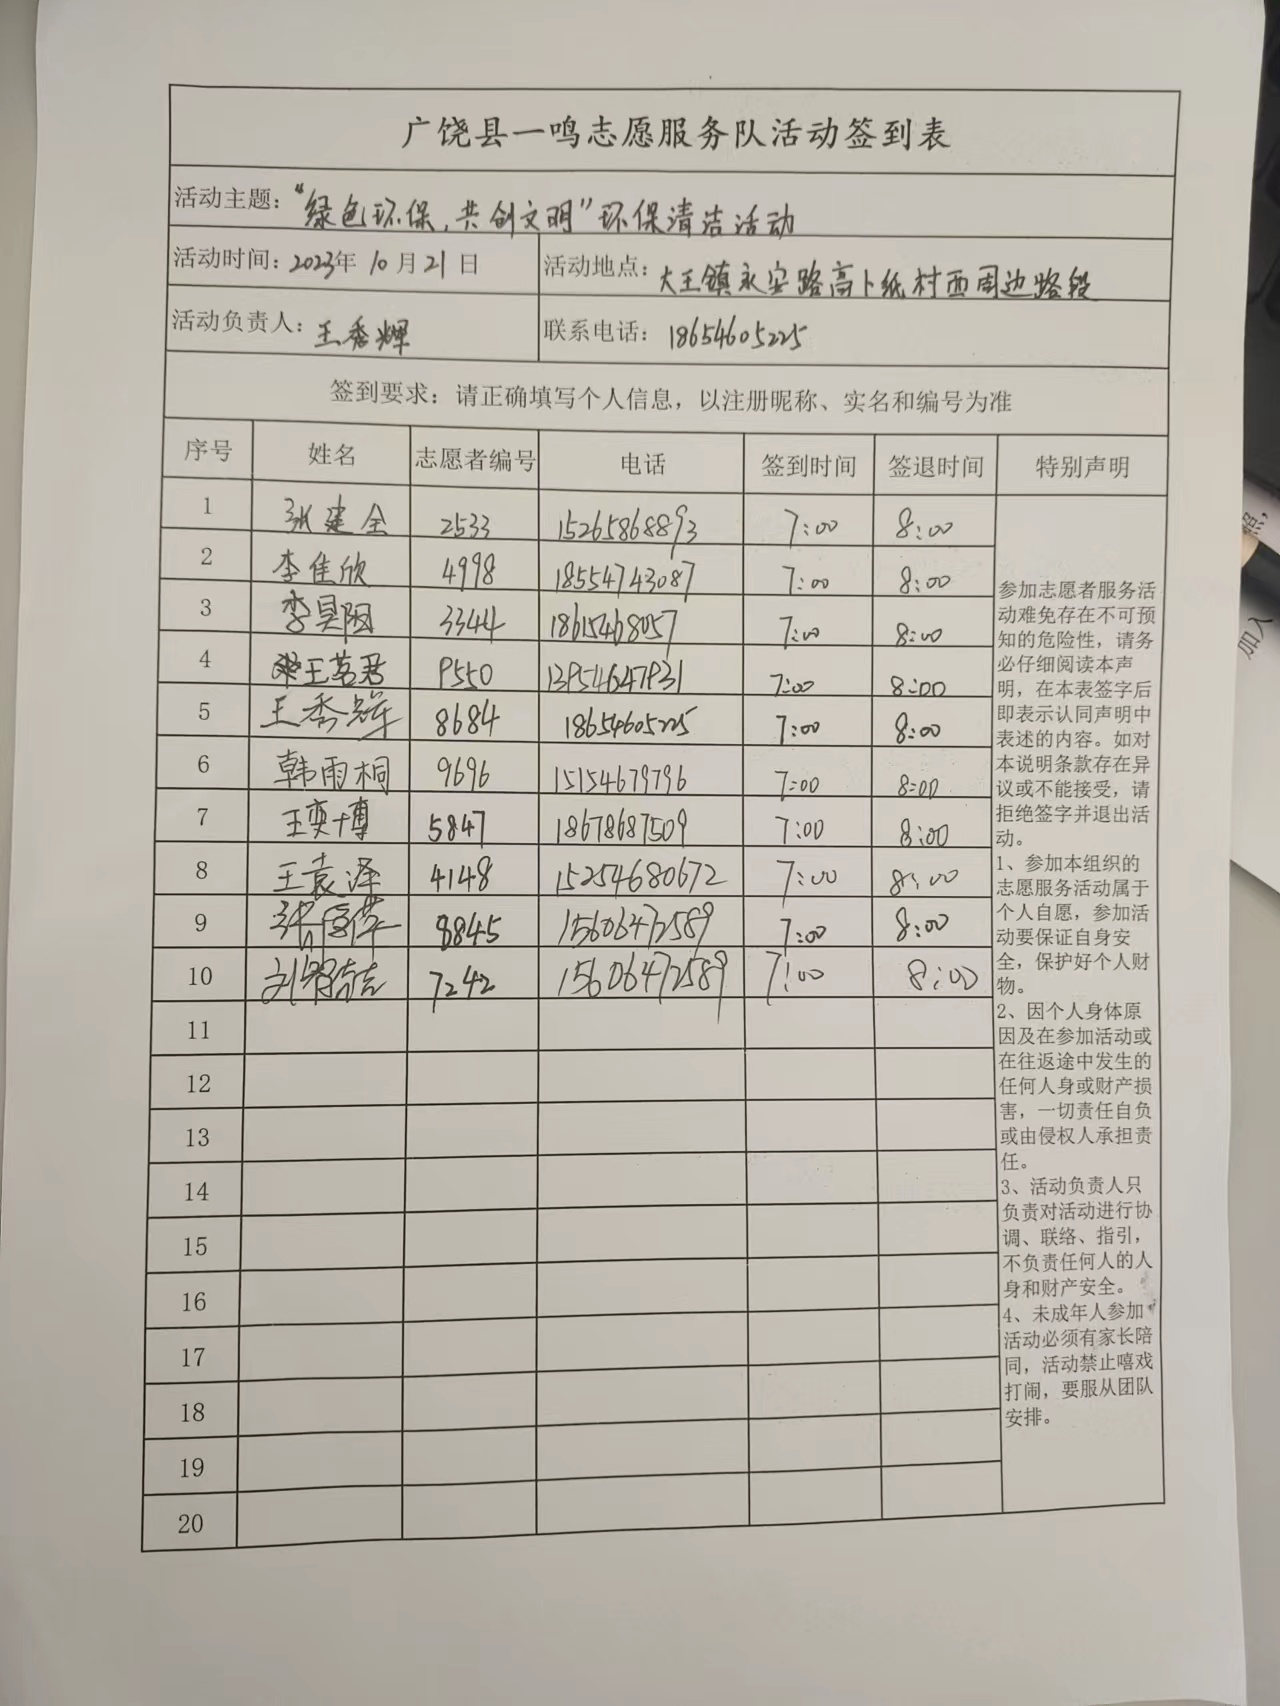 广饶县一鸣志愿服务队活动签到表
活动主题：“绿色环保，共创文明”环保清洁活动
活动时间：2023年10月21日 活动地点：大王镇永安路高卜纸村西周边路段
活动负责人：王秀辉 联系电话：18654605225
签到要求：请正确填写个人信息，以注册昵称、实名和编号为准
序号 姓名 志愿者编号 电话 签到时间 签退时间 特别声明
1 张建全 2533 15265868893 7:00 8:00
2 李佳欣 4998 18554743087 7:00 8:00
3 李昊阳 3344 18615468057 7:00 8:00
4 王茗君 9550 13954647931 7:00 8:00
5 王秀辉 8684 18654605225 7:00 8:00
6 韩雨桐 9696 15154679796 7:00 8:00
7 王奕博 5847 18678687509 7:00 8:00
8 王袁泽 4148 15254680672 7:00 8:00
9 8845 15606472589 7:00 8:00
10 刘 7242 15606472589 7:00 8:00
11
12
13
14
15
16
17
18
19
20
参加志愿者服务活
动难免存在不可预
知的危险性，请务
必仔细阅读本声
明，在本表签字后
即表示认同声明中
表述的内容。如对
本说明条款存在异
议或不能接受，请
拒绝签字并退出活
动。
1、参加本组织的
志愿服务活动属于
个人自愿，参加活
动要保证自身安
全，保护好个人财
物。
2、因个人身体原
因及在参加活动或
在往返途中发生的
任何人身或财产损
害，一切责任自负
或由侵权人承担责
任。
3、活动负责人只
负责对活动进行协
调、联络、指引，
不负责任何人的人
身和财产安全。
4、未成年人参加
活动必须有家长陪
同，活动禁止嘻戏
打闹，要服从团队
安排。
加入